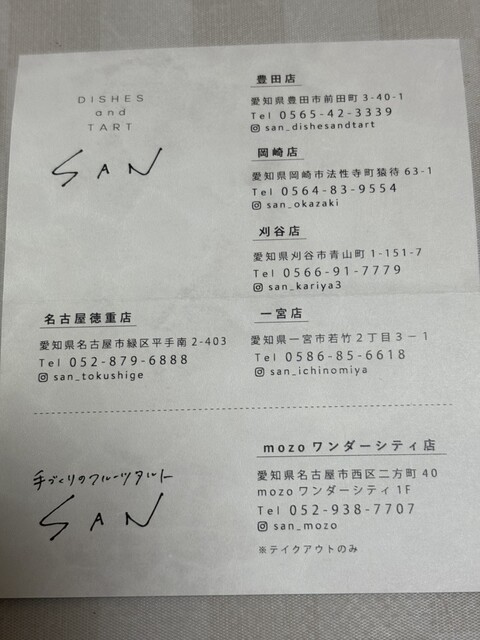 DISHES
and
TART
SAN
豊田店
愛知県豊田市前田町3-40-1
Tel 0565-42-3339
san_dishesandtart
岡崎店
愛知県岡崎市法性寺町猿待63-1
Tel 0564-83-9554
san_okazaki
刈谷店
愛知県刈谷市青山町1-151-7
Tel 0566-91-7779
san_kariya3
名古屋徳重店
愛知県名古屋市緑区平手南2-403
Tel 052-879-6888
san_tokushige
一宮店
愛知県一宮市若竹2丁目3-1
Tel 0586-85-6618
san_ichinomiya
手づくりのフルーツタルト
SAN
mozoワンダーシティ店
愛知県名古屋市西区二方町40
mozoワンダーシティ1F
Tel 052-938-7707
san_mozo
※テイクアウトのみ